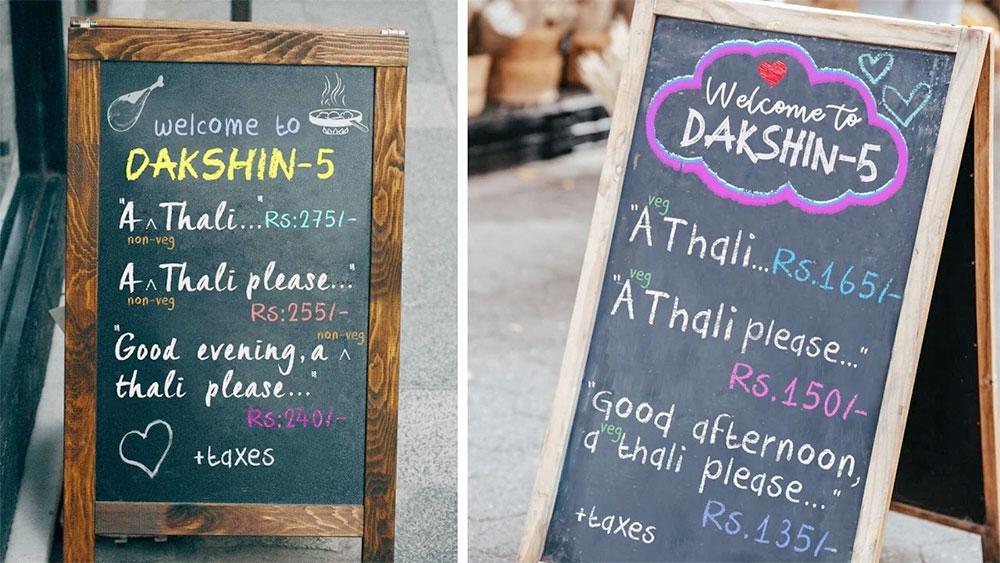 welcome to
DAKSHIN-5
"A ^ Thali..." Rs:275/-
non-veg
A ^ Thali please..."
non-veg
Rs:255/-
non-veg
"Good evening, a ^
thali please..."
Rs:240/-
+taxes
Welcome to
DAKSHIN-5
veg
"A Thali... Rs.165/-
veg
"A Thali please..."
Rs.150/-
"Good afternoon,
veg
a thali please..."
Rs.135/-
+taxes